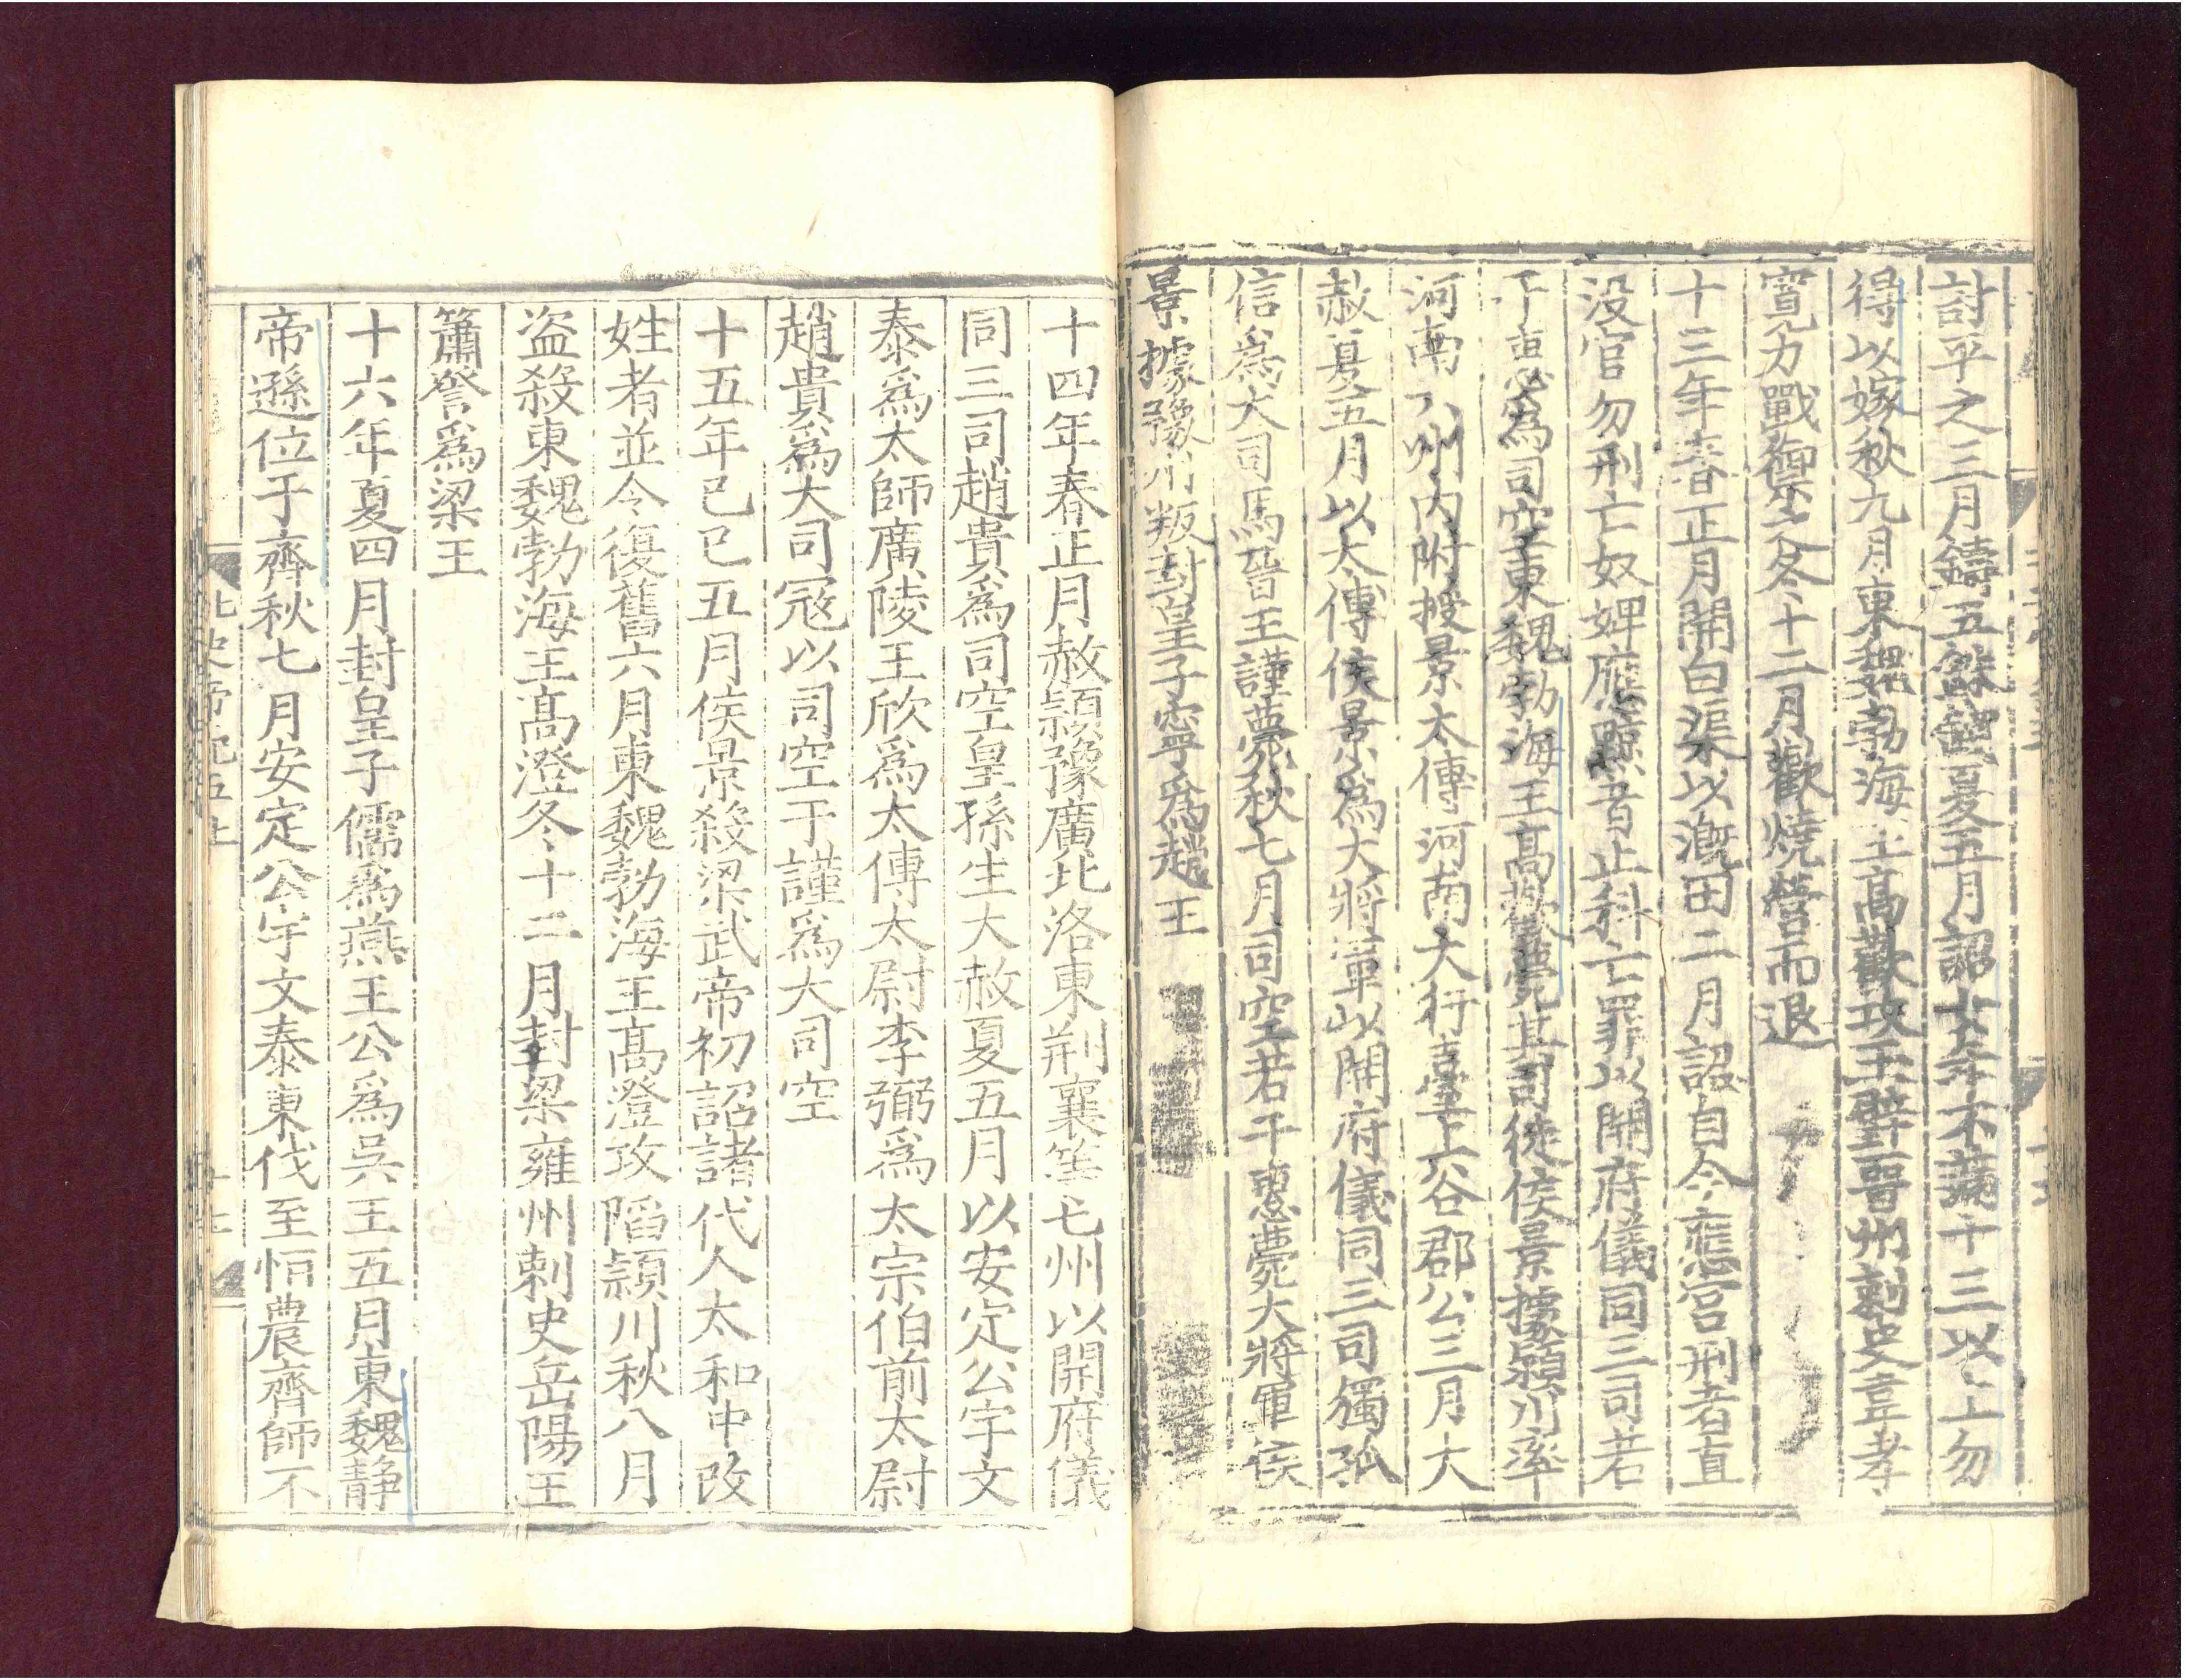 討平之三月鑄五銖錢夏五月詔女年不滿十三以上勿
得以嫁秋九月東魏勃海王高歡攻玉壁晉州刺史韋孝
寬力戰禦之冬十二月歡燒營而退
十三年春正月開白渠以漑田二月詔自今應宮刑者直
没官勿刑亡奴婢應黥者止科亡罪以開府儀同三司若
干惠爲司空東魏勃海王高歡薨其司徒侯景據潁川率
河南六州内附授景太傅河南大行臺上谷郡公三月大
赦夏五月以太傅侯景爲大將軍以開府儀同三司獨孤
信爲大司馬晉王謹薨秋七月司空若干惠薨大將軍侯
景據豫州叛封皇子寧爲趙王
十四年春正月赦潁豫廣北洛東荊襄等七州以開府儀
同三司趙貴爲司空皇孫生大赦夏五月以安定公宇文
泰爲太師廣陵王欣爲太傅太尉李弼爲太宗伯前太尉
趙貴爲大司宼以司空于謹爲大司空
十五年己巳五月侯景殺梁武帝初詔諸代人太和中改
姓者並令復舊六月東魏勃海王高澄攻陷潁川秋八月
盜殺東魏勃海王高澄冬十二月封梁雍州刺史岳陽王
簫詧爲梁王
十六年夏四月封皇子儒爲燕王公爲吳王五月東魏静
帝遜位于齊秋七月安定公宇文泰東伐至恒農齊師不
北史帝紀五上